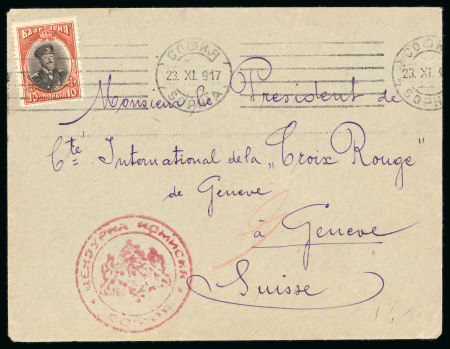 БЪЛГАРИЯ
10 СТОТИНКИ 10
СОФИЯ
23. XI. 917
SOFIA
СОФИЯ
23. XI. 9
Monsieur le President de
Cté International de la „Croix Rouge"
de Geneve
à Geneve
Suisse
ЦЕНЗУРНА КОМИСИЯ
СОФИЯ